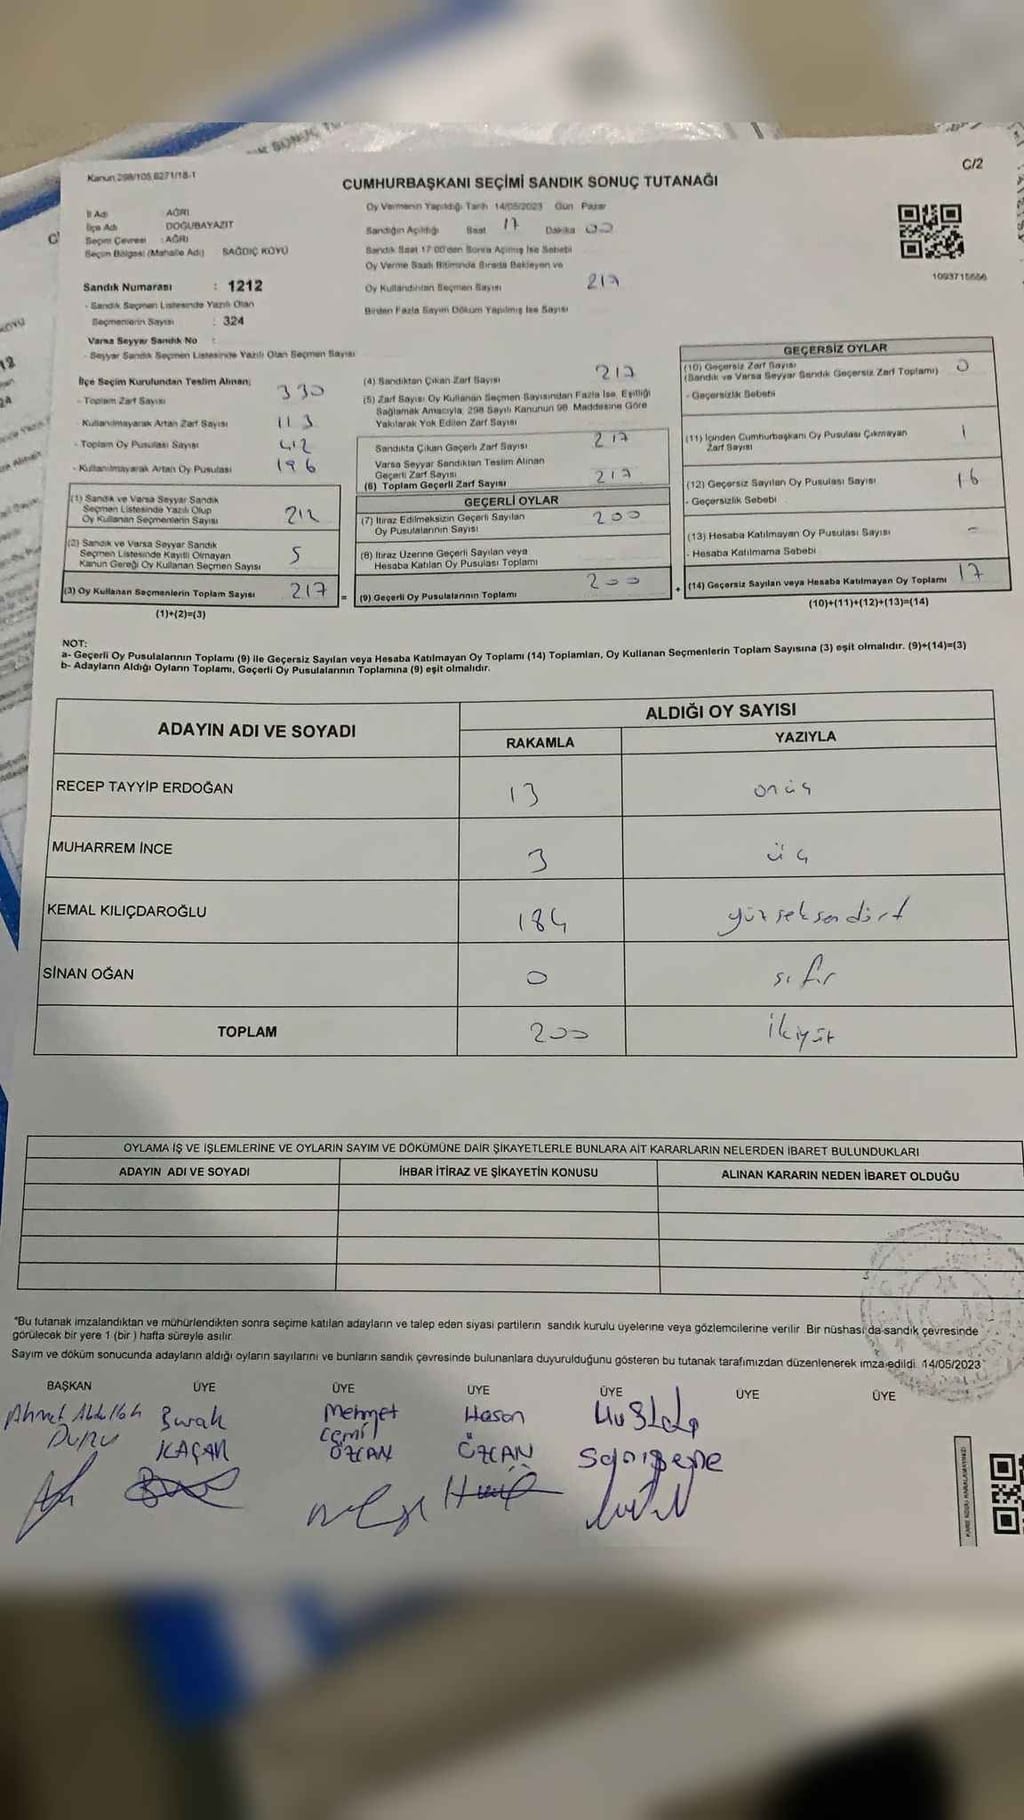 Kanun 298/105 6271/18-1
C/2
CUMHURBAŞKANI SEÇİMİ SANDIK SONUÇ TUTANAĞI
İl Adı AĞRI
İlçe Adı DOĞUBAYAZIT
Seçim Çevresi : AĞRI
Seçim Bölgesi (Mahalle Adı) SAĞDIÇ KÖYÜ
Sandık Numarası : 1212
- Sandık Seçmen Listesinde Yazılı Olan
Seçmenlerin Sayısı : 324
Varsa Seyyar Sandık No :
- Seyyar Sandık Seçmen Listesinde Yazılı Olan Seçmen Sayısı
Oy Vermenin Yapıldığı Tarih 14/05/2023 Gün Pazar
Sandığın Açıldığı Saat 17 Dakika 00
Sandık Saat 17:00'den Sonra Açılmış İse Sebebi
Oy Verme Saati Bitiminde Sırada Bekleyen ve
Oy Kullandırılan Seçmen Sayısı 217
Birden Fazla Sayım Döküm Yapılmış İse Sayısı
1093715656
İlçe Seçim Kurulundan Teslim Alınan;
- Toplam Zarf Sayısı 330
- Kullanılmayarak Artan Zarf Sayısı 113
- Toplam Oy Pusulası Sayısı 412
- Kullanılmayarak Artan Oy Pusulası 196
(1) Sandık ve Varsa Seyyar Sandık
Seçmen Listesinde Yazılı Olup
Oy Kullanan Seçmenlerin Sayısı 212
(2) Sandık ve Varsa Seyyar Sandık
Seçmen Listesinde Kayıtlı Olmayan
Kanun Gereği Oy Kullanan Seçmen Sayısı 5
(3) Oy Kullanan Seçmenlerin Toplam Sayısı 217 =
(1)+(2)=(3)
(4) Sandıktan Çıkan Zarf Sayısı 217
(5) Zarf Sayısı Oy Kullanan Seçmen Sayısından Fazla İse, Eşitliği
Sağlamak Amacıyla, 298 Sayılı Kanunun 98. Maddesine Göre
Yakılarak Yok Edilen Zarf Sayısı
Sandıkta Çıkan Geçerli Zarf Sayısı 217
Varsa Seyyar Sandıktan Teslim Alınan
Geçerli Zarf Sayısı
(6) Toplam Geçerli Zarf Sayısı 217
GEÇERLİ OYLAR
(7) İtiraz Edilmeksizin Geçerli Sayılan
Oy Pusulalarının Sayısı 200
(8) İtiraz Üzerine Geçerli Sayılan veya
Hesaba Katılan Oy Pusulası Toplamı
(9) Geçerli Oy Pusulalarının Toplamı 200 +
GEÇERSİZ OYLAR
(10) Geçersiz Zarf Sayısı 0
(Sandık ve Varsa Seyyar Sandık Geçersiz Zarf Toplamı)
- Geçersizlik Sebebi
(11) İçinden Cumhurbaşkanı Oy Pusulası Çıkmayan
Zarf Sayısı 1
(12) Geçersiz Sayılan Oy Pusulası Sayısı 16
- Geçersizlik Sebebi
(13) Hesaba Katılmayan Oy Pusulası Sayısı -
- Hesaba Katılmama Sebebi
(14) Geçersiz Sayılan veya Hesaba Katılmayan Oy Toplamı 17
(10)+(11)+(12)+(13)=(14)
NOT:
a- Geçerli Oy Pusulalarının Toplamı (9) ile Geçersiz Sayılan veya Hesaba Katılmayan Oy Toplamı (14) Toplamları, Oy Kullanan Seçmenlerin Toplam Sayısına (3) eşit olmalıdır. (9)+(14)=(3)
b- Adayların Aldığı Oyların Toplamı, Geçerli Oy Pusulalarının Toplamına (9) eşit olmalıdır.
ADAYIN ADI VE SOYADI
ALDIĞI OY SAYISI
RAKAMLA YAZIYLA
RECEP TAYYİP ERDOĞAN 13 onüç
MUHARREM İNCE 3 üç
KEMAL KILIÇDAROĞLU 184 yüzseksendört
SİNAN OĞAN 0 sıfır
TOPLAM 200 ikiyüz
OYLAMA İŞ VE İŞLEMLERİNE VE OYLARIN SAYIM VE DÖKÜMÜNE DAİR ŞİKAYETLERLE BUNLARA AİT KARARLARIN NELERDEN İBARET BULUNDUKLARI
ADAYIN ADI VE SOYADI İHBAR İTİRAZ VE ŞİKAYETİN KONUSU ALINAN KARARIN NEDEN İBARET OLDUĞU
*Bu tutanak imzalandıktan ve mühürlendikten sonra seçime katılan adayların ve talep eden siyasi partilerin sandık kurulu üyelerine veya gözlemcilerine verilir. Bir nüshası da sandık çevresinde
görülecek bir yere 1 (bir) hafta süreyle asılır.
Sayım ve döküm sonucunda adayların aldığı oyların sayılarını ve bunların sandık çevresinde bulunanlara duyurulduğunu gösteren bu tutanak tarafımızdan düzenlenerek imza edildi. 14/05/2023
BAŞKAN ÜYE ÜYE ÜYE ÜYE ÜYE ÜYE
Ahmet Abdullah Burak Mehmet Hasan
DURU KAÇAN Cemil ÖZCAN
ÖZCAN